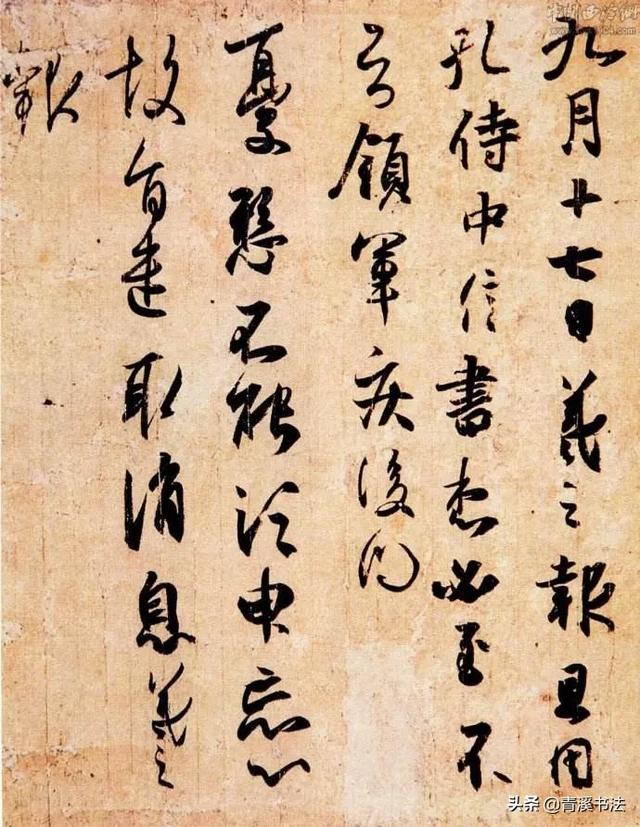 九月十七日羲之報且因
孔侍中信書想必至不
知領軍疾後問
憂懸不能須臾忘心
故旨遣取消息羲之
報
头条 @青溪书法